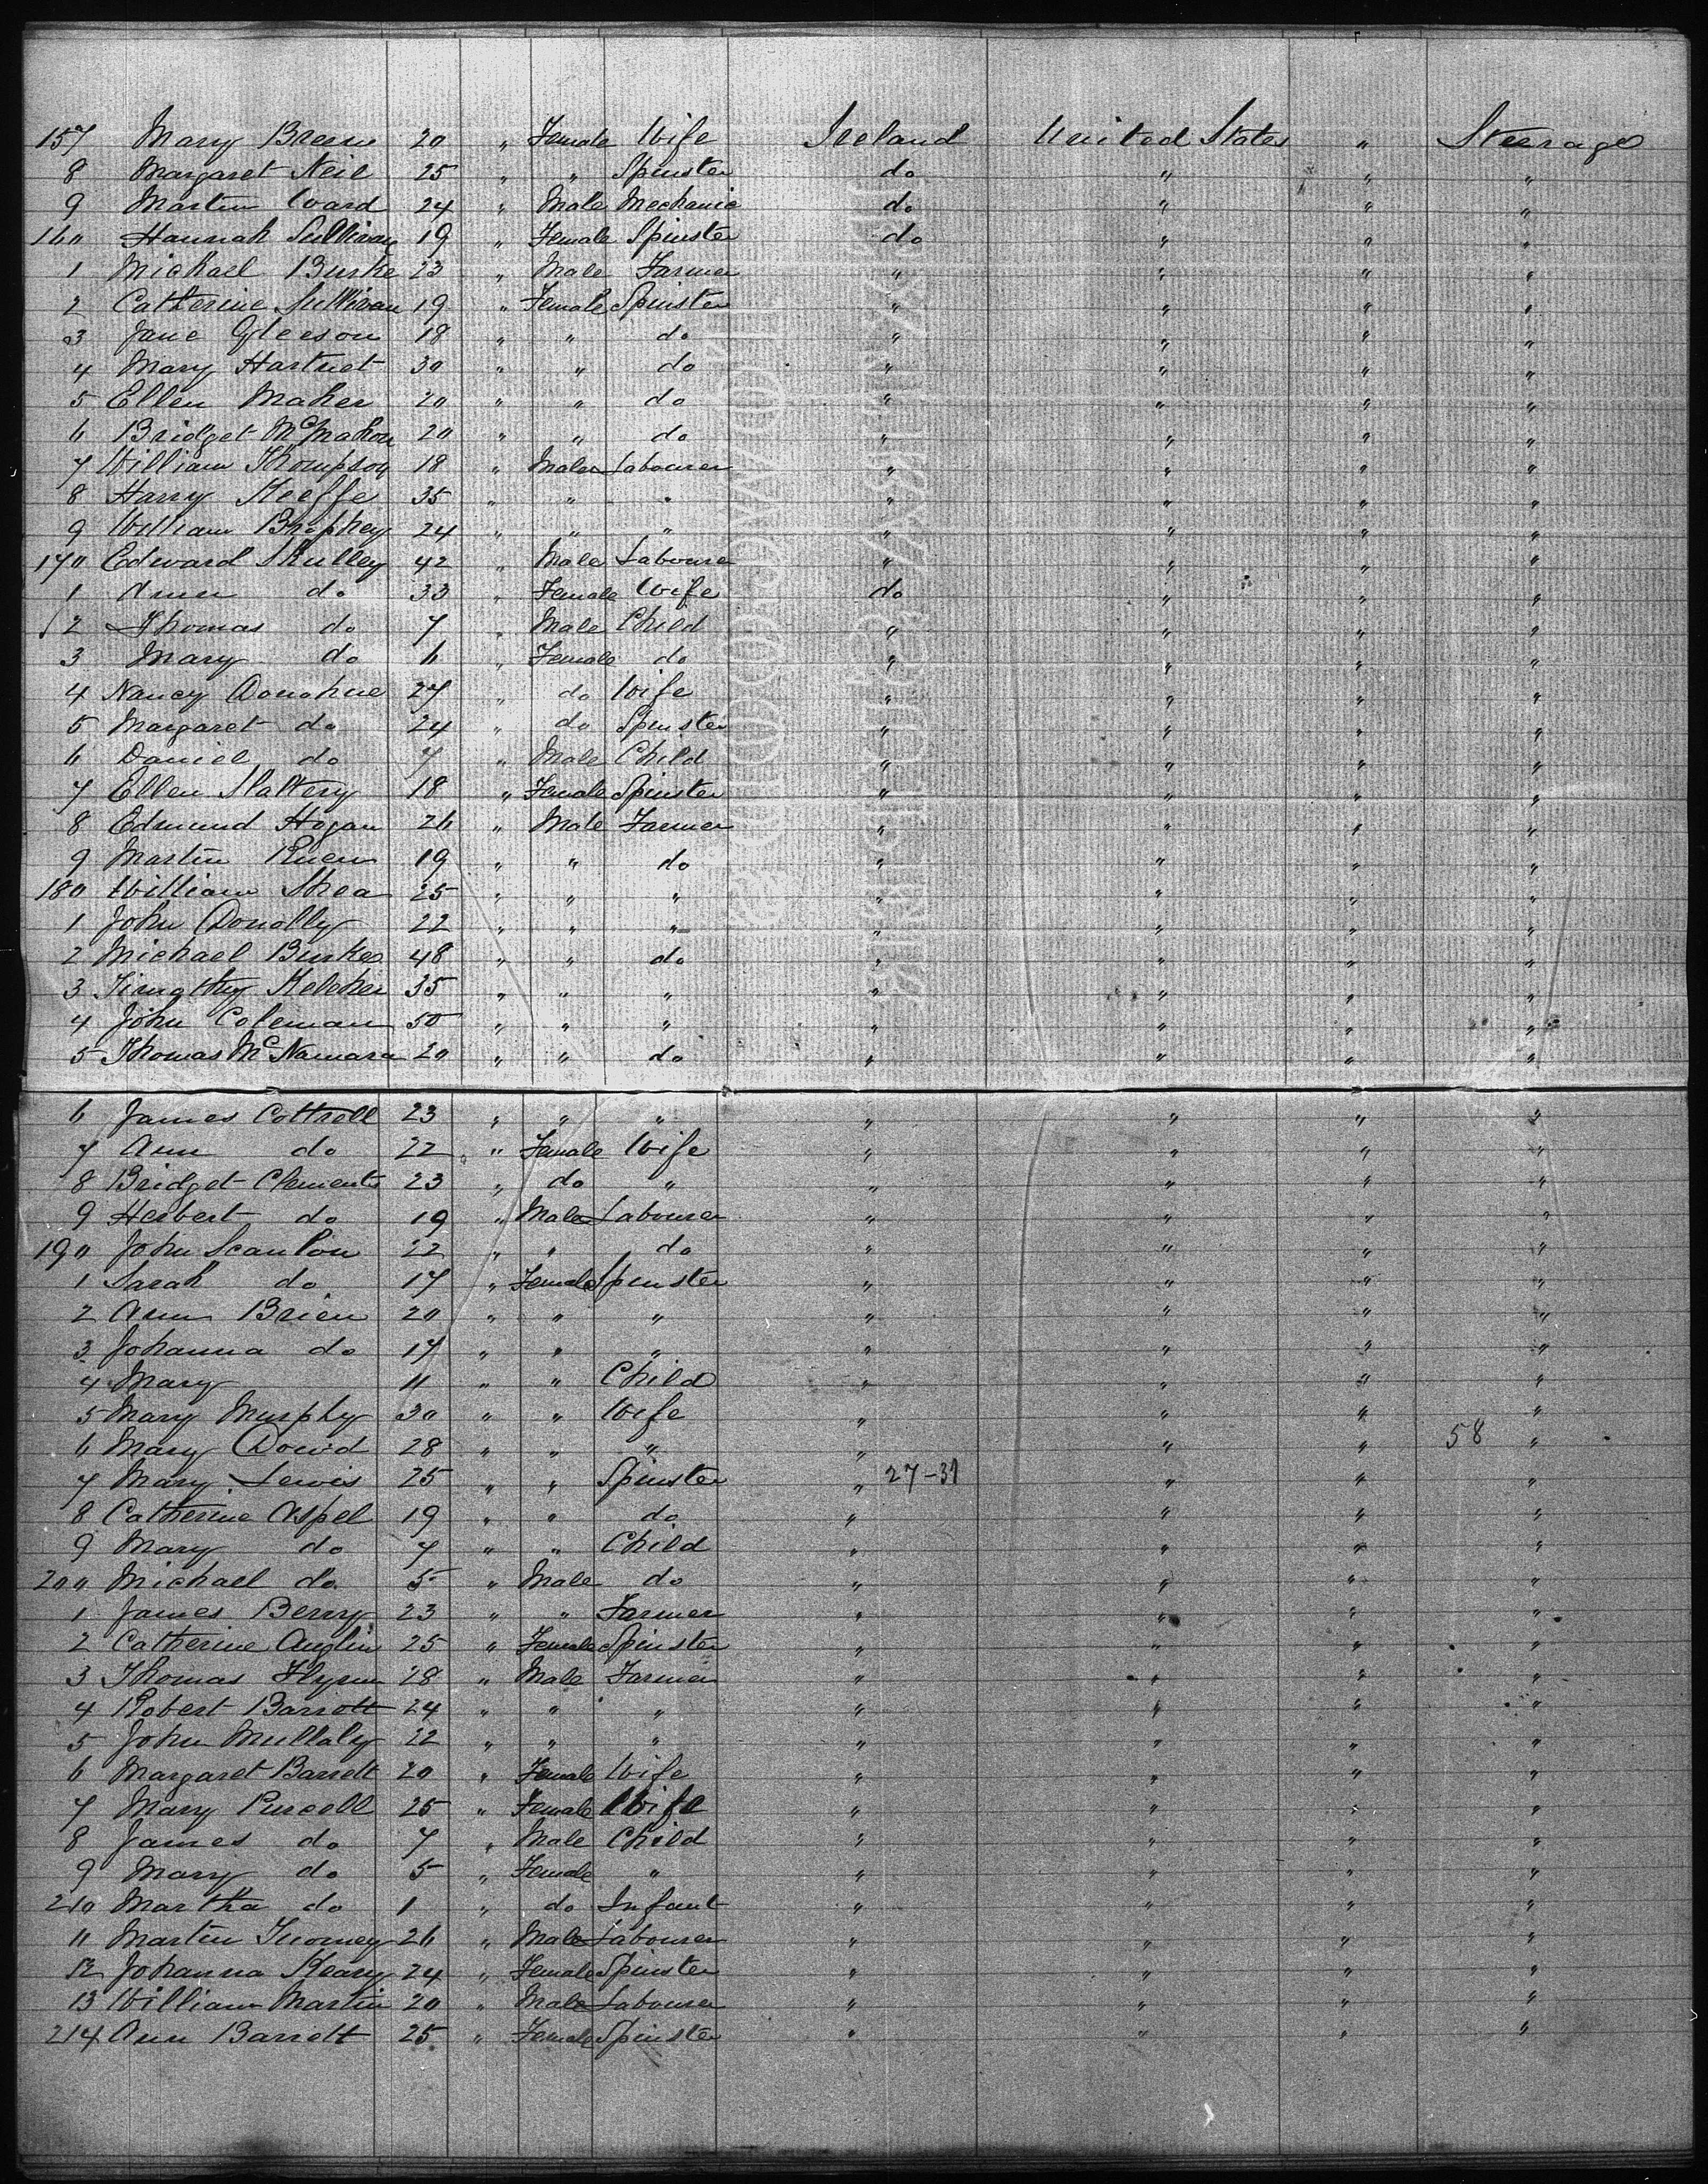 157 Mary Breen 20 " Female Wife Ireland United States " Steerage
8 Margaret Neil 25 " " Spinster do " " "
9 Martin Ward 24 " Male Mechanic do " " "
160 Hannah Sullivan 19 " Female Spinster do " " "
1 Michael Burke 23 " Male Farmer " " " "
2 Catherine Sullivan 19 " Female Spinster " " " "
3 Jane Gleeson 18 " " do " " " "
4 Mary Hartnet 30 " " do " " " "
5 Ellen Maher 20 " " do " " " "
6 Bridget McMahon 20 " " do " " " "
7 William Thompson 18 " Male Labourer " " " "
8 Harry Keeffe 35 " " " " " " "
9 William Brophey 24 " " " " " " "
170 Edward Skulley 42 " Male Labourer " " " "
1 Ann do 33 " Female Wife do " " "
2 Thomas do 7 " Male Child " " " "
3 Mary do 6 " Female do " " " "
4 Nancy Donohue 27 " do Wife " " " "
5 Margaret do 24 " do Spinster " " " "
6 Daniel do 7 " Male Child " " " "
7 Ellen Slattery 18 " Female Spinster " " " "
8 Edmund Hogan 26 " Male Farmer " " " "
9 Martin 19 " " do " " " "
180 William Shea 25 " " " " " " "
1 John Donolly 22 " " " " " " "
2 Michael Burke 48 " " do " " " "
3 Timothy Keleher 35 " " " " " " "
4 John Coleman 50 " " " " " " "
5 Thomas McNamara 20 " " do " " " "
6 James Cottrell 23 " " " " " " "
7 Ann do 22 " Female Wife " " " "
8 Bridget Clements 23 " do " " " " "
9 Herbert do 19 " Male Labourer " " " "
190 John Scanlon 22 " " do " " " "
1 Sarah do 17 " Female Spinster " " " "
2 Ann Brien 20 " " " " " " "
3 Johanna do 17 " " " " " " "
4 Mary 11 " " Child " " " "
5 Mary Murphy 30 " " Wife " " " "
6 Mary Dowd 28 " " " " " " 58 "
7 Mary Lewis 25 " " Spinster " 27-31 " " "
8 Catherine Aspel 19 " " do " " " "
9 Mary do 7 " " Child " " " "
200 Michael do 5 " Male do " " " "
1 James Berry 23 " " Farmer " " " "
2 Catherine Anglin 25 " Female Spinster " " " "
3 Thomas Flynn 28 " Male Farmer " " " "
4 Robert Barrett 24 " " " " " " "
5 John Mullaly 22 " " " " " " "
6 Margaret Barrett 20 " Female Wife " " " "
7 Mary Purcell 25 " Female Wife " " " "
8 James do 7 " Male Child " " " "
9 Mary do 5 " Female " " " " "
210 Martha do 1 " do Infant " " " "
11 Martin Twomey 26 " Male Labourer " " " "
12 Johanna Keary 24 " Female Spinster " " " "
13 William Martin 20 " Male Labourer " " " "
214 Ann Barrett 25 " Female Spinster " " " "